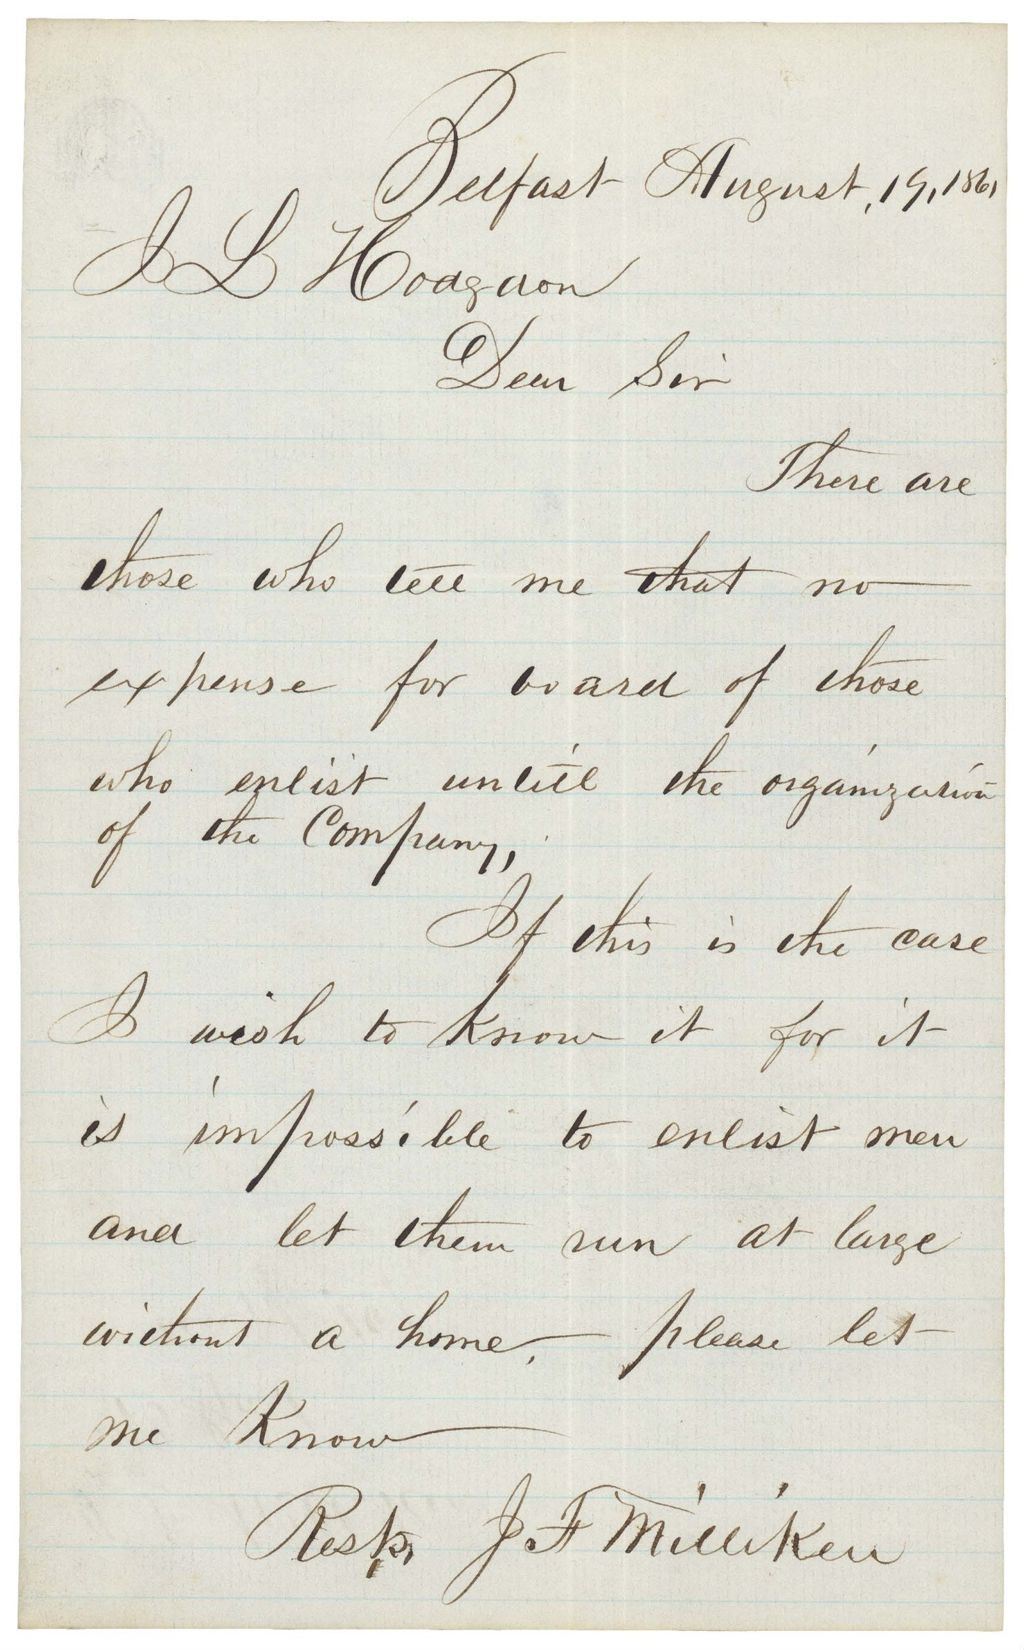 Belfast August, 19, 1861
J L Hodgdon
Dear Sir
There are
those who tell me that no
expense for board of those
who enlist untill the organization
of the Company,
If this is the case
I wish to know it for it
is impossible to enlist men
and let them run at large
without a home, please let
me know
Resp, J F Milliken